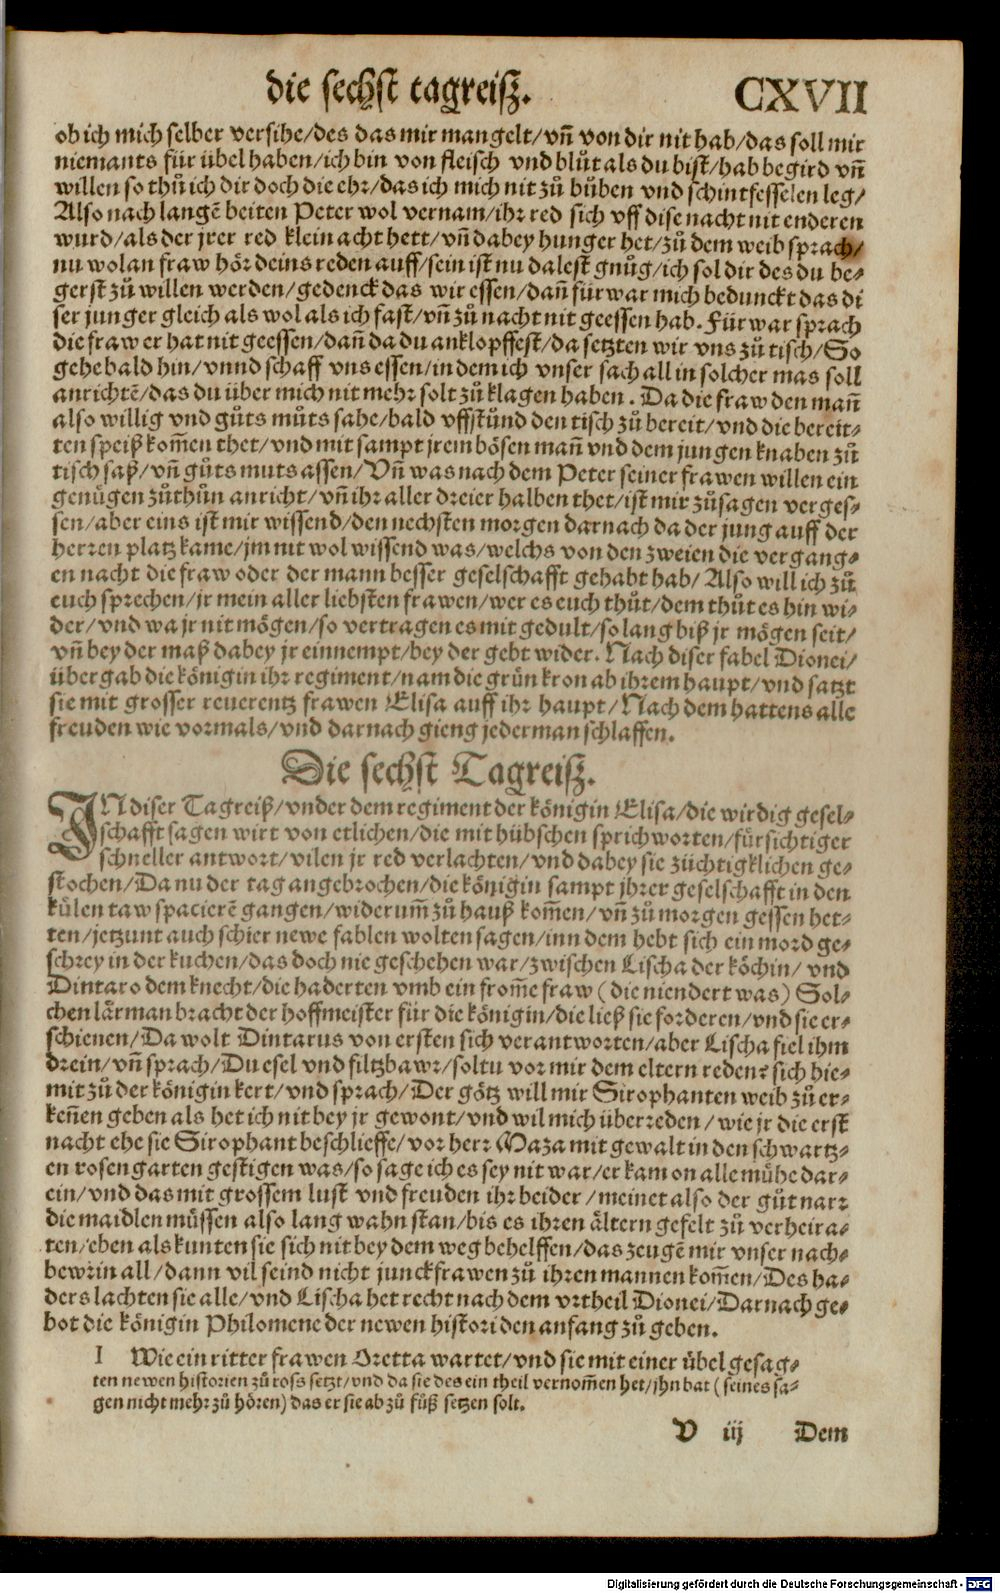 die sechst tagreisz. CXVII
ob ich mich selber versihe/des das mir mangelt/vñ von dir nit hab/das soll mir
niemants für übel haben/ich bin von fleisch vnd blůt als du bist/hab begird vñ
willen so thů ich dir doch die ehr/das ich mich nit zů bůben vnd schintfesselen leg/
Also nach langẽ beiten Peter wol vernam/ihr red sich vff dise nacht nit enderen
wurd/als der jrer red klein acht hett/vñ dabey hunger het/zů dem weib sprach/
nu wolan fraw hör deins reden auff/sein ist nu dalest gnůg/ich sol dir des du be-
gerst zů willen werden/gedenck das wir essen/dañ fürwar mich bedunckt das di
ser junger gleich als wol als ich fast/vñ zů nacht nit geessen hab. Fürwar sprach
die fraw er hat nit geessen/dañ da du anklopffest/da setzten wir vns zů tisch/So
gehe bald hin/vnnd schaff vns essen/in dem ich vnser sach all in solcher mas soll
anrichtẽ/das du über mich nit mehr solt zů klagen haben. Da die fraw den mañ
also willig vnd gůts můts sahe/bald vffstůnd den tisch zů bereit/vnd die bereit-
ten speiß kom̃en thet/vnd mit sampt jrem bösen mañ vnd dem jungen knaben zů
tisch saß/vñ gůts muts assen/Vñ was nach dem Peter seiner frawen willen ein
genügen zůthůn anricht/vñ ihr aller dreier halben thet/ist mir zůsagen verges-
sen/aber eins ist mir wissend/den nechsten morgen darnach da der jung auff der
herren platz kame/jm nit wol wissend was/welchs von den zweien die vergang-
en nacht die fraw oder der mann besser geselschafft gehabt hab/Also will ich zů
euch sprechen/jr mein aller liebsten frawen/wer es euch thůt/dem thůt es hin wi-
der/vnd wa jr nit mögen/so vertragen es mit gedult/so lang biß jr mögen seit/
vñ bey der maß dabey jr einnempt/bey der gebt wider. Nach diser fabel Dionei/
übergab die königin ihr regiment/nam die grün kron ab ihrem haupt/vnd satzt
sie mit grosser reuerentz frawen Elisa auff ihr haupt/Nach dem hattens alle
freuden wie vormals/vnd darnach gieng jederman schlaffen.
Die sechst Tagreisz.
IN diser Tagreiß/vnder dem regiment der königin Elisa/die wirdig gesel-
schafft sagen wirt von etlichen/die mit hübschen sprichworten/fürsichtiger
schneller antwort/vilen jr red verlachten/vnd dabey sie züchtigklichen ge-
stochen/Da nu der tag angebrochen/die königin sampt jhrer geselschafft in den
külen taw spacierẽ gangen/widerum̃ zů hauß kom̃en/vñ zů morgen gessen het-
ten/jetzunt auch schier newe fablen wolten sagen/inn dem hebt sich ein mord ge-
schrey in der kuchen/das doch nie geschehen war/zwischen Lischa der köchin/vnd
Dintaro dem knecht/die haderten vmb ein from̃e fraw (die niendert was) Sol-
chen lärman bracht der hoffmeister für die königin/die ließ sie forderen/vnd sie er-
schienen/Da wolt Dintarus von ersten sich verantworten/aber Lischa fiel ihm
drein/vñ sprach/Du esel vnd filtzbawr/soltu vor mir dem eltern reden? sich hie-
mit zů der königin kert/vnd sprach/Der götz will mir Sirophanten weib zů er-
keñen geben als het ich nit bey jr gewont/vnd wil mich überreden/wie jr die erst
nacht ehe sie Sirophant beschlieffe/vor herr Maza mit gewalt in den schwartz-
en rosengarten gestigen was/so sage ich es sey nit war/er kam on alle mühe dar-
ein/vnd das mit grossem lust vnd freuden ihr beider/meinet also der gůt narr
die maidlen müssen also lang wahn stan/bis es ihren ältern gefelt zů verheira-
ten/eben als kunten sie sich nit bey dem weg behelffen/das zeugẽ mir vnser nach-
bewrin all/dann vil seind nicht junckfrawen zů ihren mannen kom̃en/Des ha-
ders lachten sie alle/vnd Lischa het recht nach dem vrtheil Dionei/Darnach ge-
bot die königin Philomene der newen histori den anfang zů geben.
I Wie ein ritter frawen Oretta wartet/vnd sie mit einer übel gesag-
ten newen historien zů ross setzt/vnd da sie des ein theil vernom̃en het/jhn bat (seines sa-
gen nicht mehr zů hören) das er sie ab zů fůß setzen solt.
V iij Dem
Digitalisierung gefördert durch die Deutsche Forschungsgemeinschaft - DFG